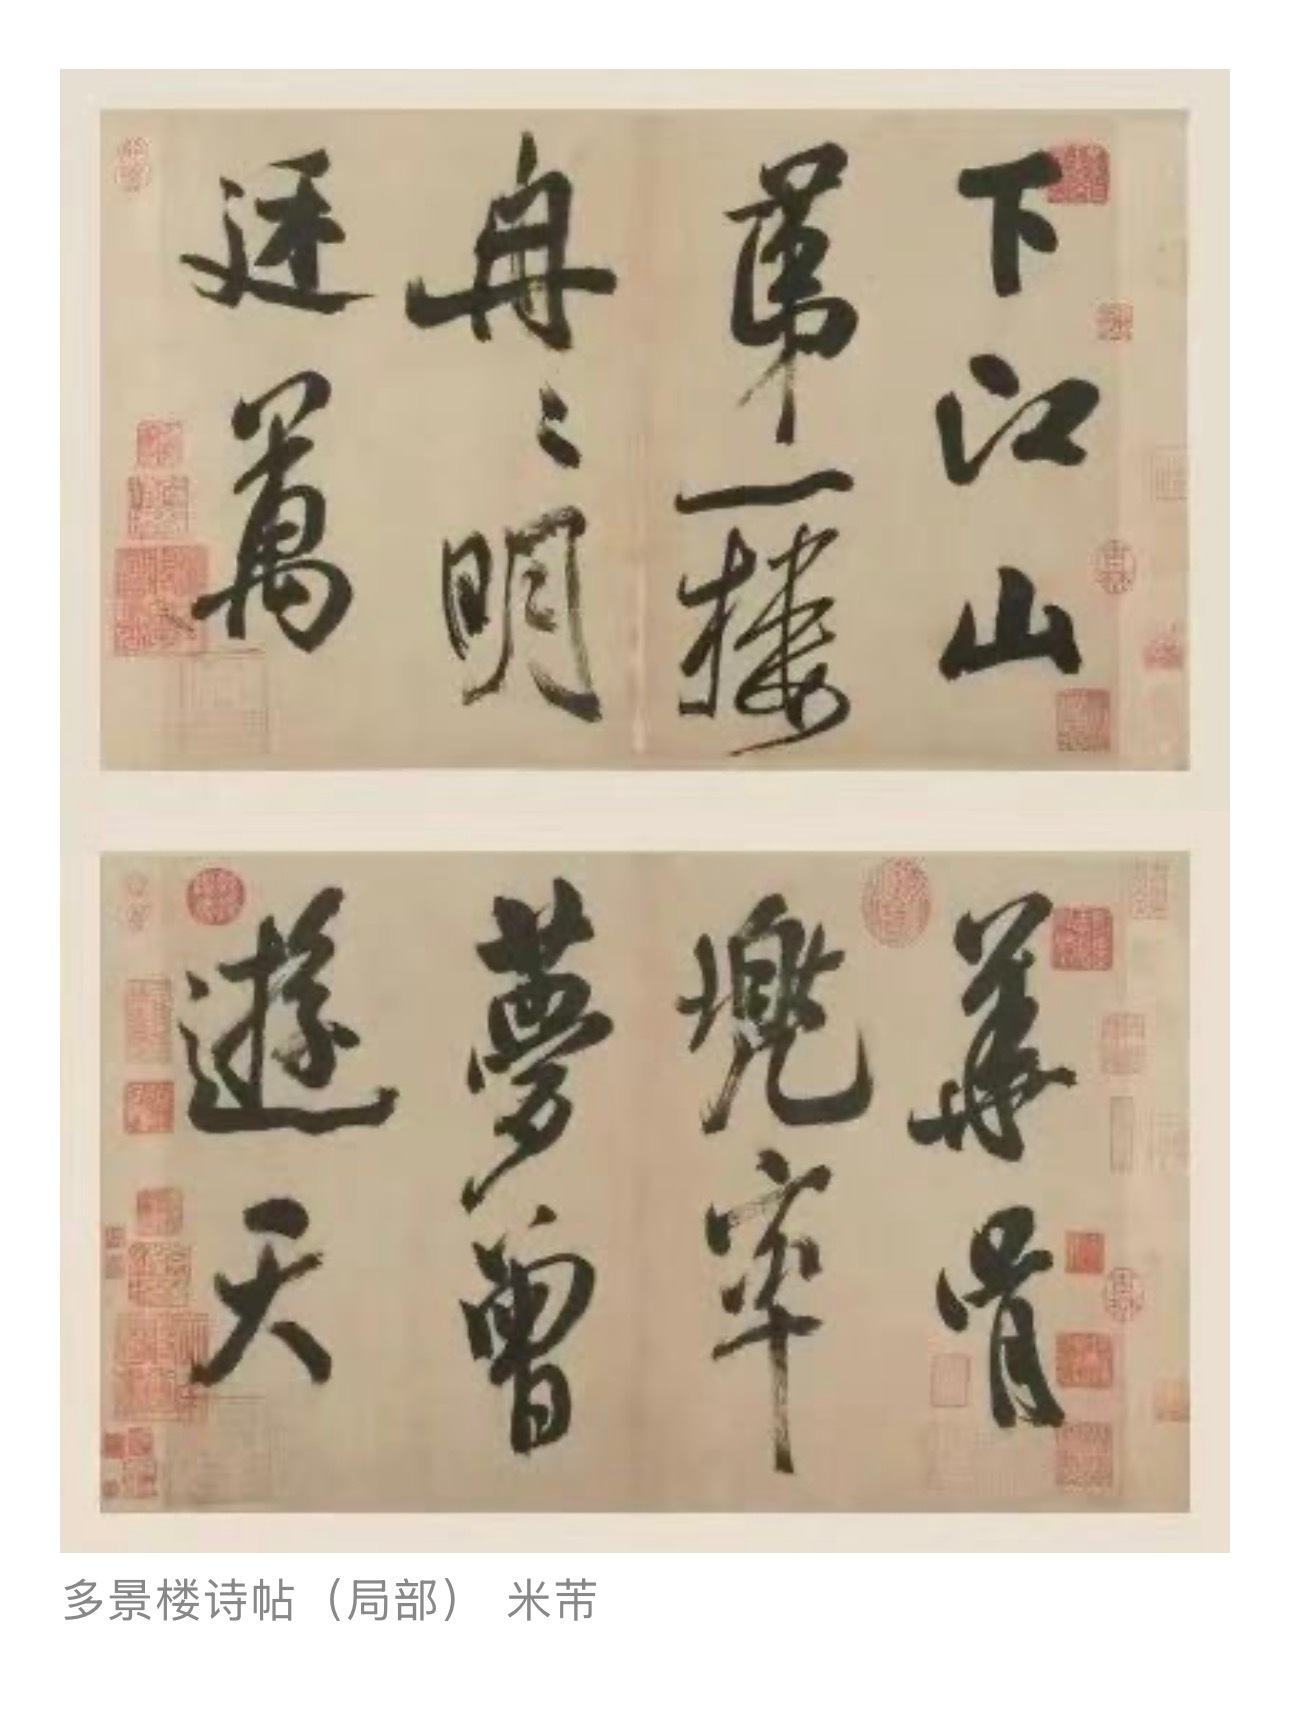 下江山
第一樓
冉〻明
廷萬
華胥
兜率
夢曾
遊天
多景楼诗帖（局部） 米芾